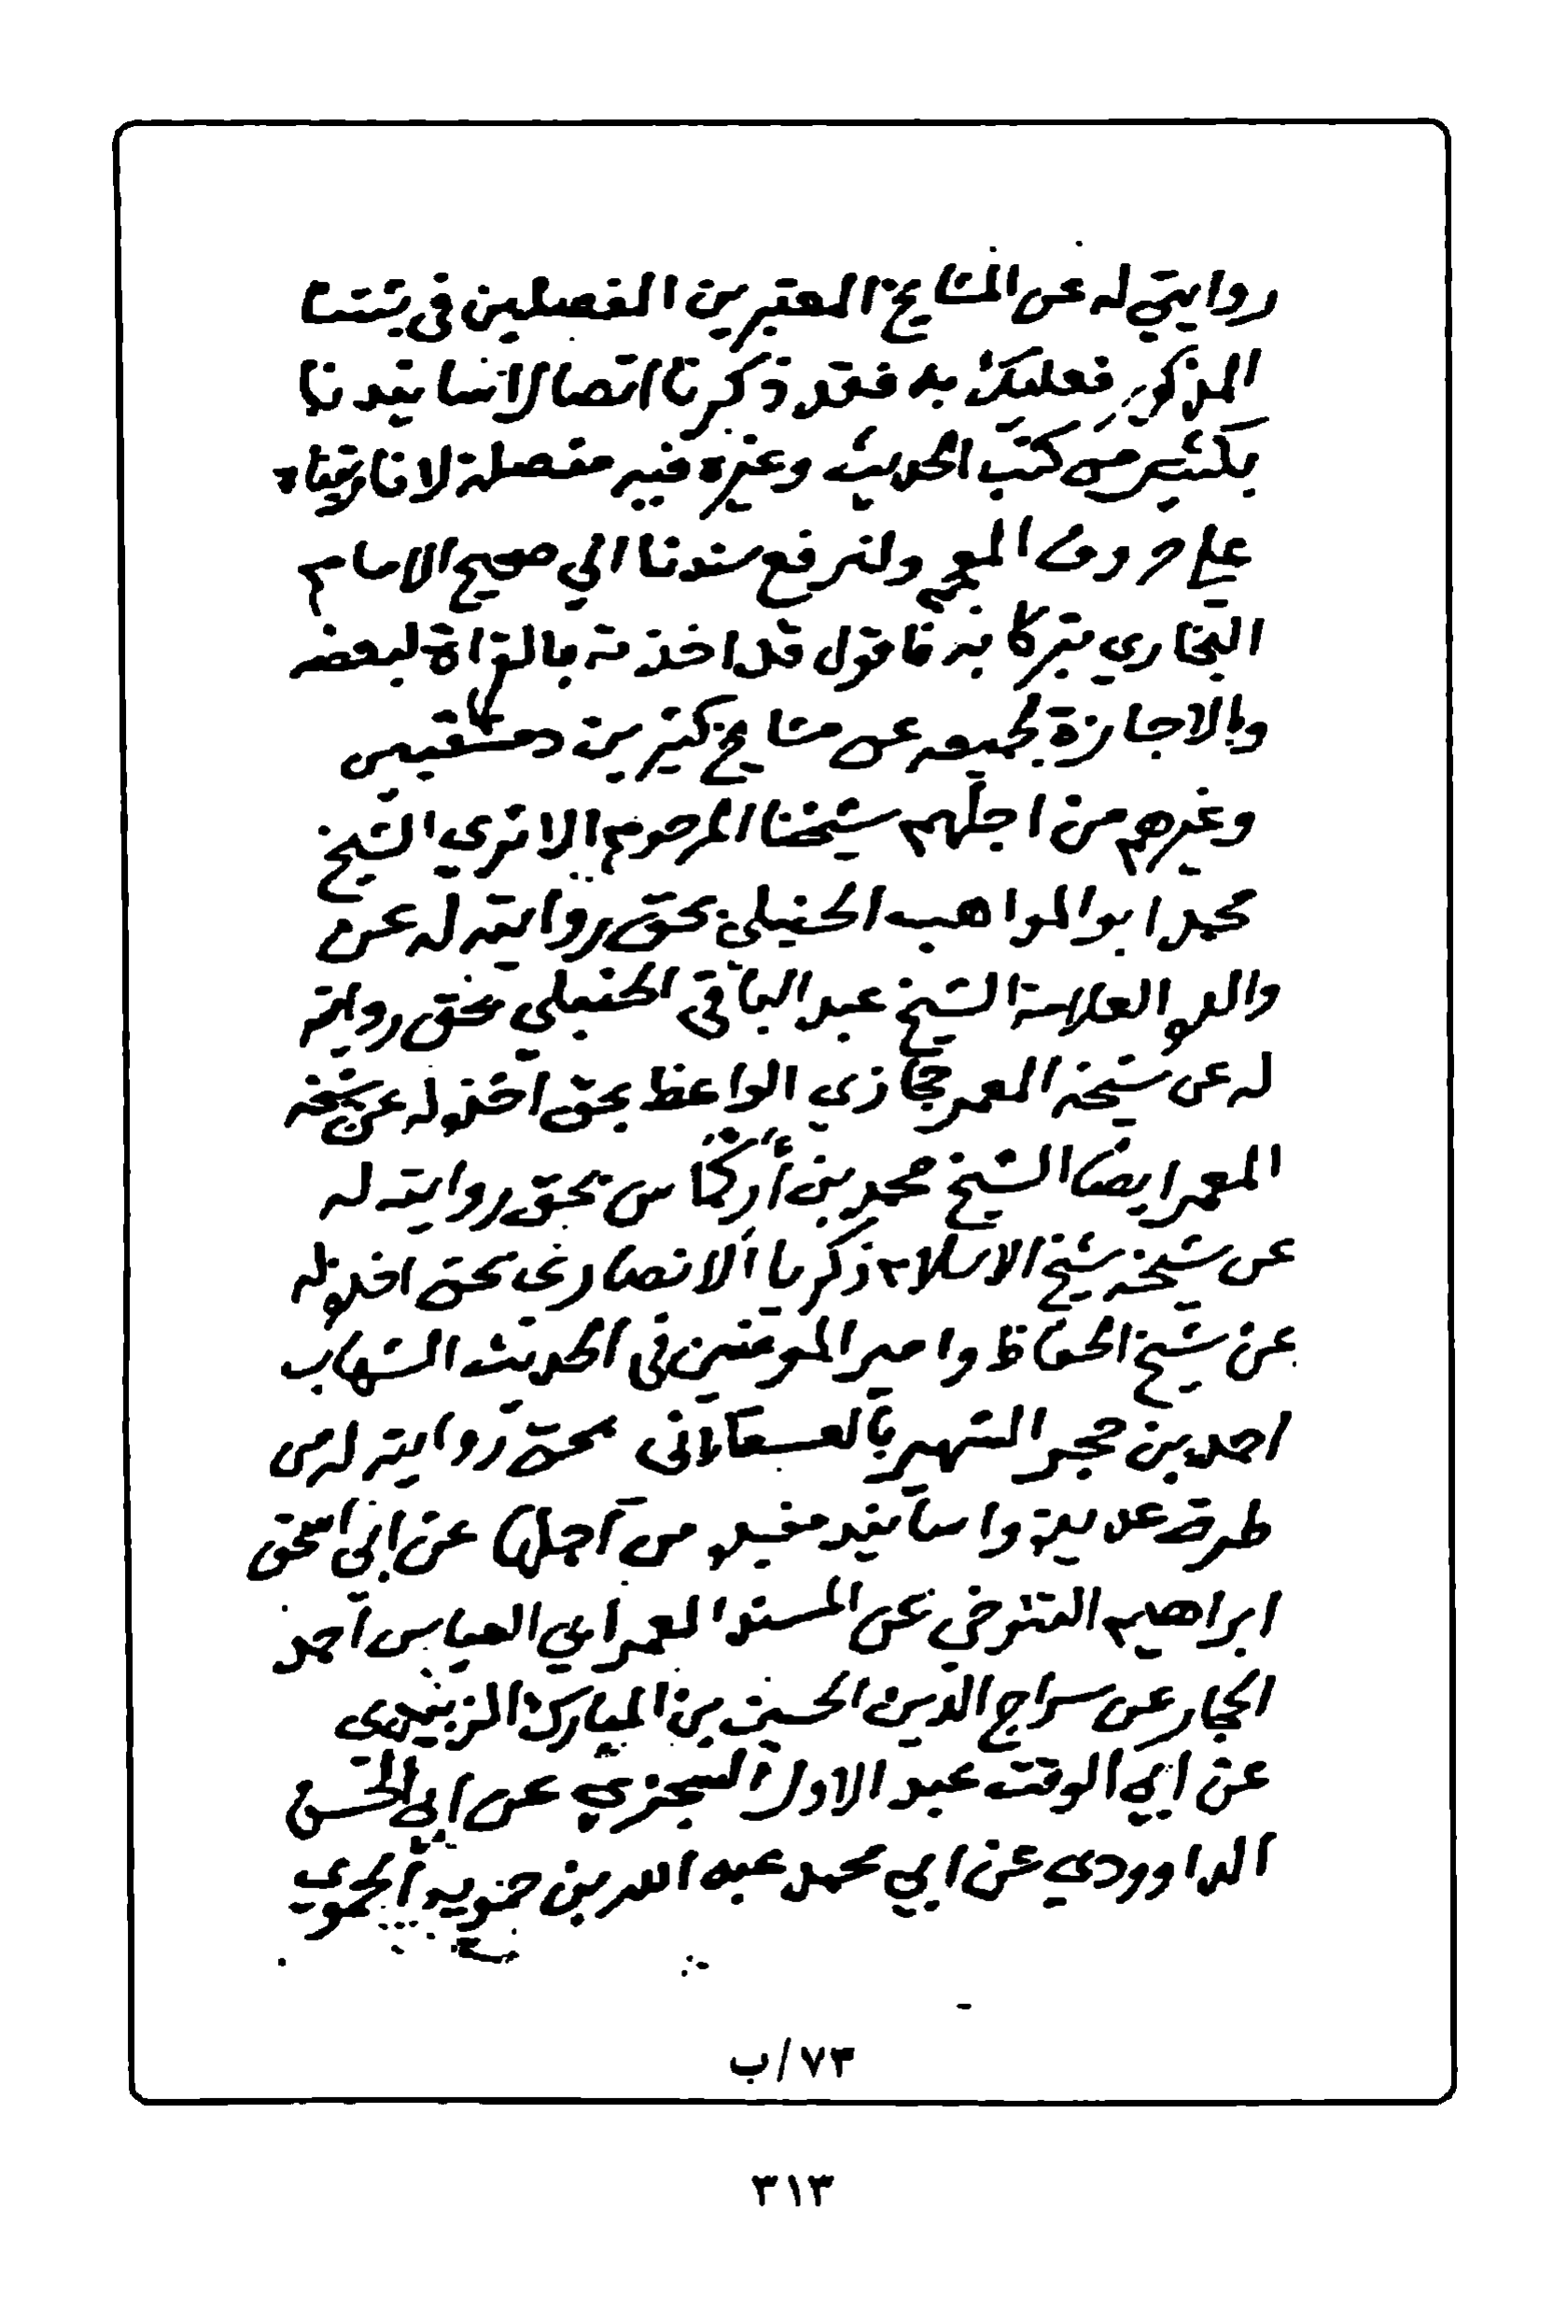 روايتي له عن المشايخ المعتبرين المفصلين في ثبتنا
المذكور فعليك به فقد ذكرنا اتصال اسانيدنا
بكثير من كتب الحديث وغيره فيه مفصلة لانا رتبناه
علي حروف المعجم ولنرفع سندنا الي صحيح الامام
البخاري تبركا به فاقول قد اخذته بالقراة لبعضه
والاجازة لجميعه عن مشايخ كثيرين دمشقيين
وغيرهم من اجلهم شيخنا المرحوم الاثري الشيخ
محمد ابو المواهب الحنبلي بحق روايته له عن
والده العلامة الشيخ عبد الباقي الحنبلي بحق روايته
له عن شيخه المعمر حجازي الواعظ بحق اخذه له عن شيخه
المعمر ايضا الشيخ محمد بن أركماس بحق روايته له
عن شيخه شيخ الاسلام زكريا الانصاري بحق اخذه له
عن شيخ الحفاظ وامير المومنين في الحديث الشهاب
احمد بن حجر الشهير بالعسقلاني بحق روايته له من
طرق عديدة واسانيد مفيده من اجلها عن ابي اسحق
ابراهيم التنوخي عن المسند المعمر ابي العباس احمد
الحجار عن سراج الدين الحسين بن المبارك الزبيدي
عن ابي الوقت عبد الاول السجزي عن ابي الحسن
الداوودي عن ابي محمد عبد الله بن حمويه الحموي
٧٣/ب
٣١٣